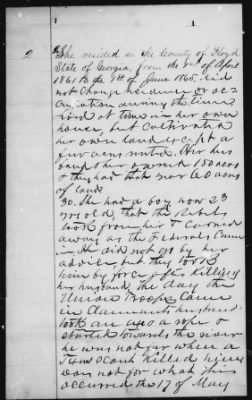 2 She resided in the County of Floyd
State of Georgia, from the 1st of April
1861 to the 1st of June 1865. did
not change residence or oc-
cupation during the time
lived at time in her own
house, but cultivated
her own land except a
few acres rented. She has
bought her 150 acres
& they had that 60 acres
of land.
30. She had a boy now 23
yrs old, that the Rebels
took from her & carried
away as the Federals came
in. He did not go by her
advice but they took
him by force after killing
her husband, the day the
Union Troops came
in Claimants husband
took an & a rope &
started towards the river
he was not far when a
Scout killed him
was not for what this
occurred the 17 of May